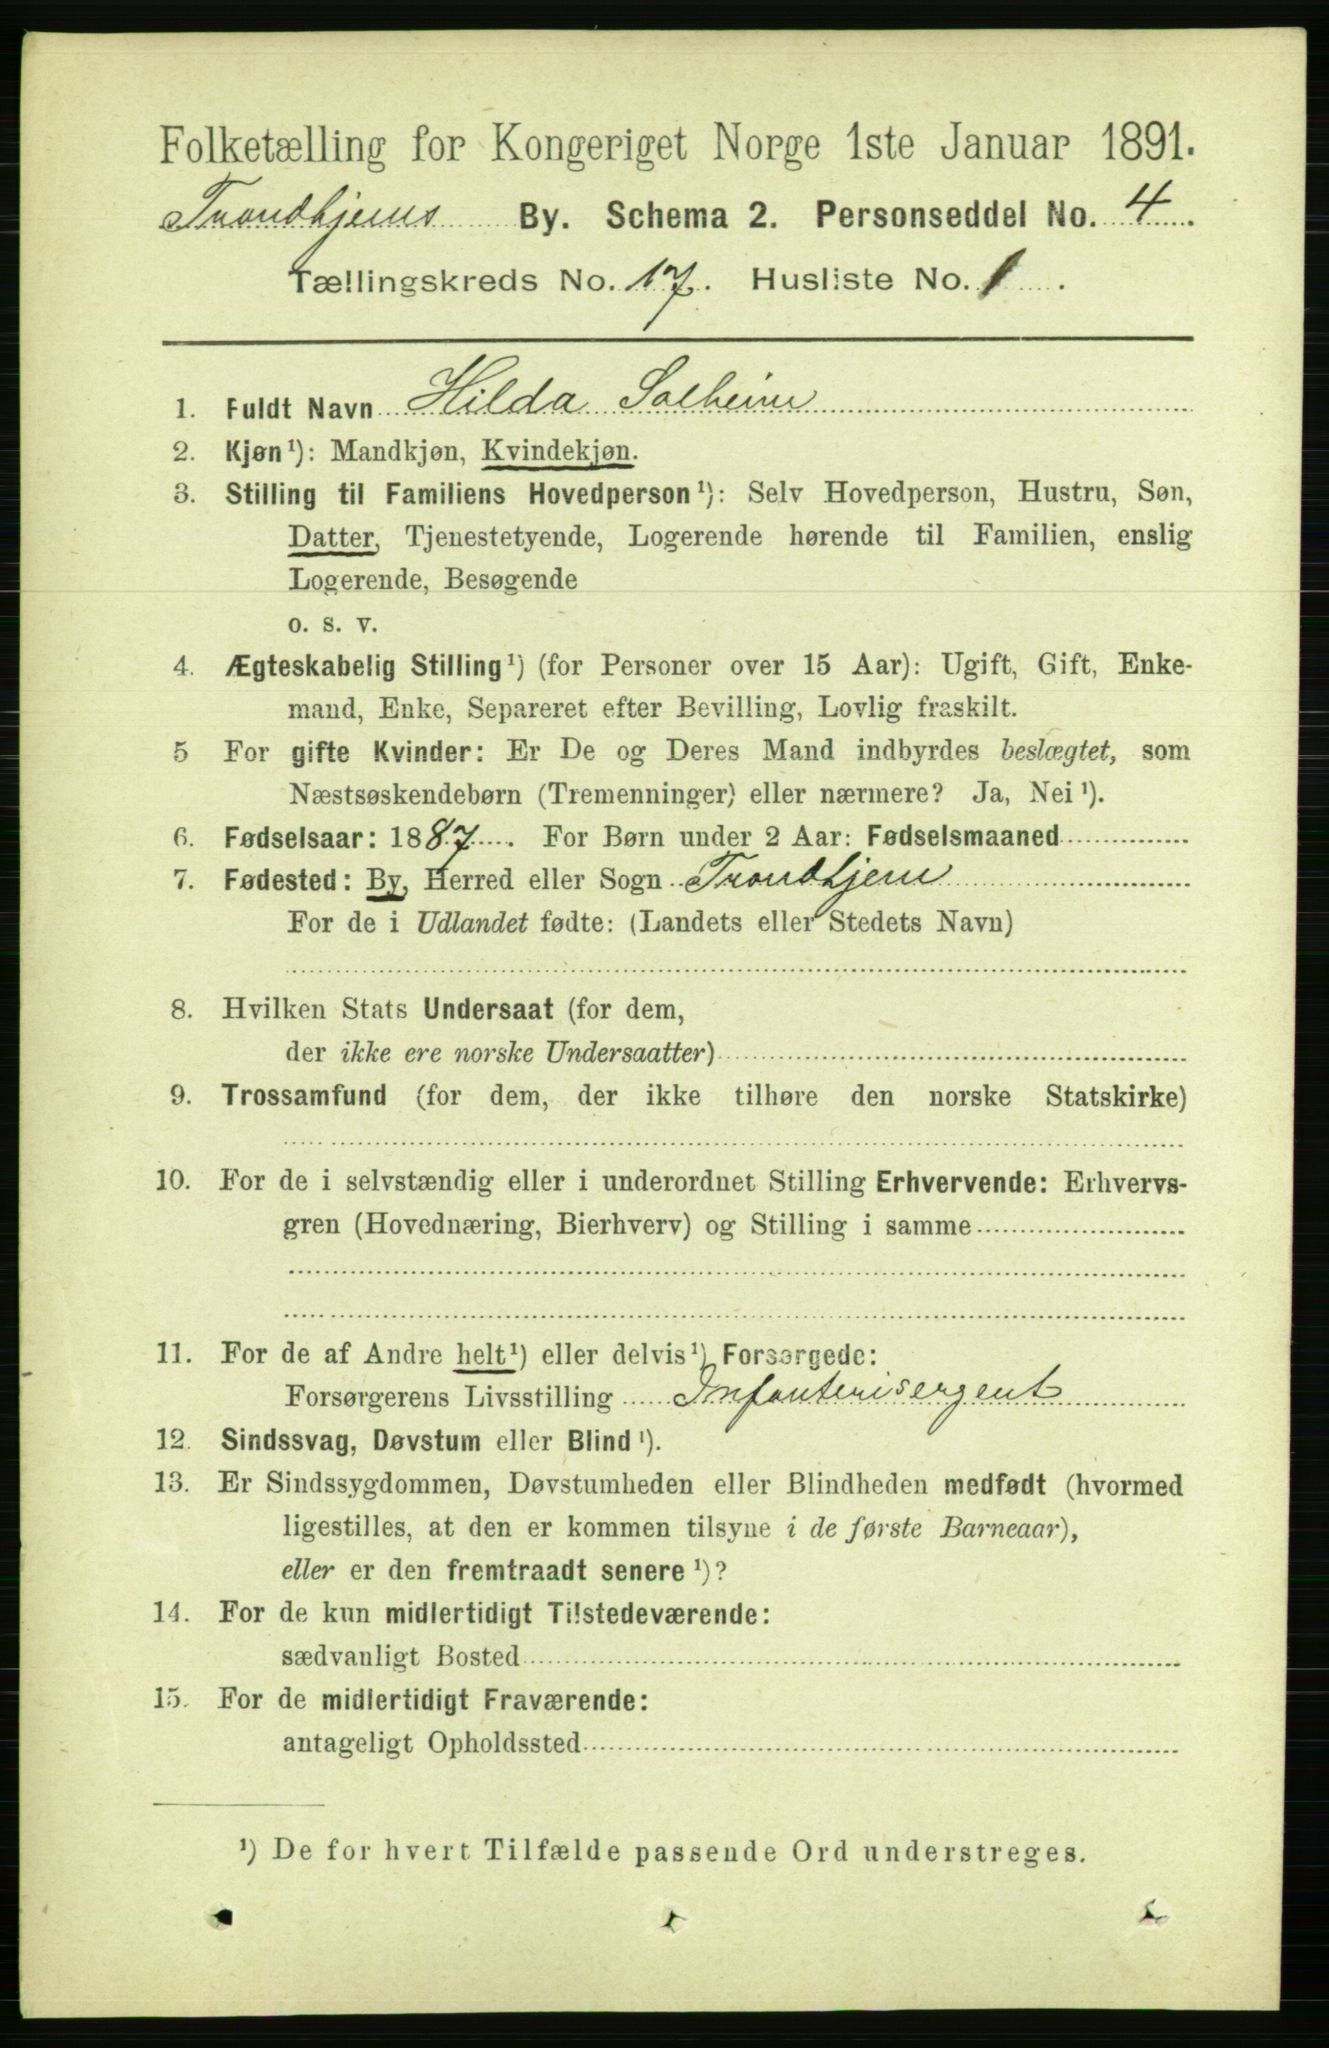 Folketælling for Kongeriget Norge 1ste Januar 1891.
Trondhjems By. Schema 2. Personseddel No. 4.
Tællingskreds No. 17. Husliste No. 1.
1. Fuldt Navn Hilda Solheim
2. Kjøn¹): Mandkjøn, Kvindekjøn.
3. Stilling til Familiens Hovedperson¹): Selv Hovedperson, Hustru, Søn,
Datter, Tjenestetyende, Logerende hørende til Familien, enslig
Logerende, Besøgende
o. s. v.
4. Ægteskabelig Stilling¹) (for Personer over 15 Aar): Ugift, Gift, Enke-
mand, Enke, Separeret efter Bevilling, Lovlig fraskilt.
5 For gifte Kvinder: Er De og Deres Mand indbyrdes beslægtet, som
Næstsøskendebørn (Tremenninger) eller nærmere? Ja, Nei¹).
6. Fødselsaar: 1887. For Børn under 2 Aar: Fødselsmaaned
7. Fødested: By, Herred eller Sogn Trondhjem
For de i Udlandet fødte: (Landets eller Stedets Navn)
8. Hvilken Stats Undersaat (for dem,
der ikke ere norske Undersaatter)
9. Trossamfund (for dem, der ikke tilhøre den norske Statskirke)
10. For de i selvstændig eller i underordnet Stilling Erhvervende: Erhvervs-
gren (Hovednæring, Bierhverv) og Stilling i samme
11. For de af Andre helt¹) eller delvis¹) Forsørgede:
Forsørgerens Livsstilling Infanterisergent
12. Sindssvag, Døvstum eller Blind¹).
13. Er Sindssygdommen, Døvstumheden eller Blindheden medfødt (hvormed
ligestilles, at den er kommen tilsyne i de første Barneaar),
eller er den fremtraadt senere¹)?
14. For de kun midlertidigt Tilstedeværende:
sædvanligt Bosted
15. For de midlertidigt Fraværende:
antageligt Opholdssted
¹) De for hvert Tilfælde passende Ord understreges.